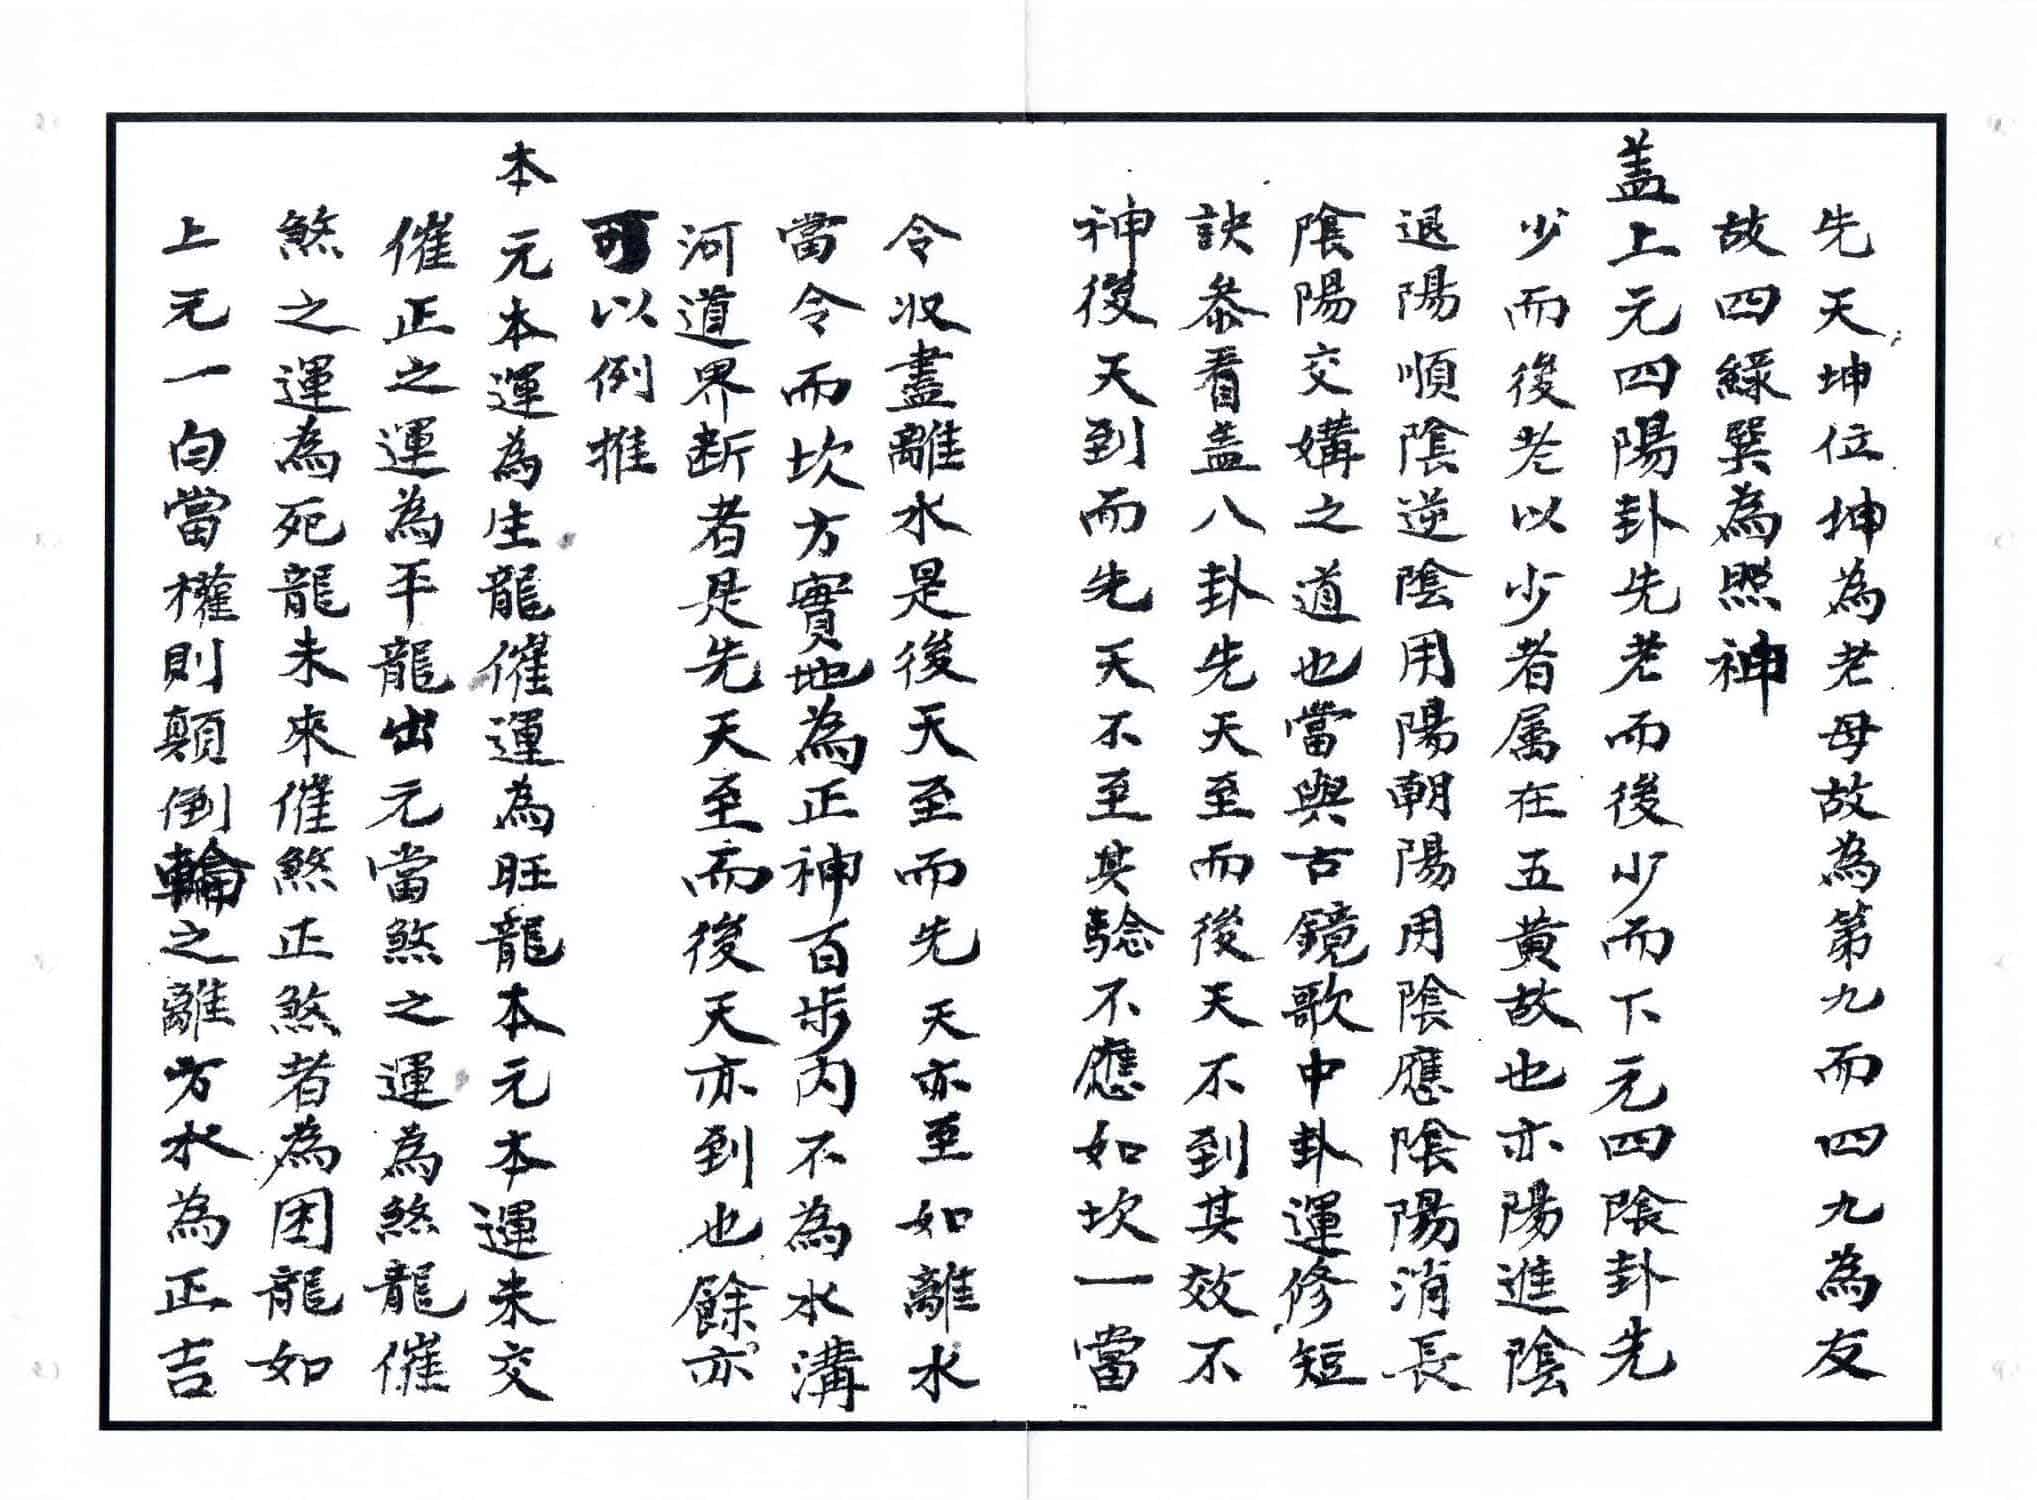 先天坤位坤為老母故為第九而四九為友
故四綠巽為照神
盖上元四陽卦先老而後少而下元四陰卦先
少而後老以少者属在五黃故也亦陽進陰
退陽順陰逆陰用陽朝陽用陰應陰陽消長
陰陽交媾之道也當與古鏡歌中卦運修短
訣叅看盖八卦先天至而後天不到其效不
神後天到而先天不至其騐不應如坎一當
令收盡離水是後天至而先天亦至如離水
當令而坎方實地為正神百步内不為水溝
河道界断者是先天至而後天亦到也餘亦
可以例推
本元本運為生龍催運為旺龍本元本運未交
催正之運為平龍出元當煞之運為煞龍催
煞之運為死龍未來催煞正煞者為困龍如
上元一白當權則顛倒輪之離方水為正吉